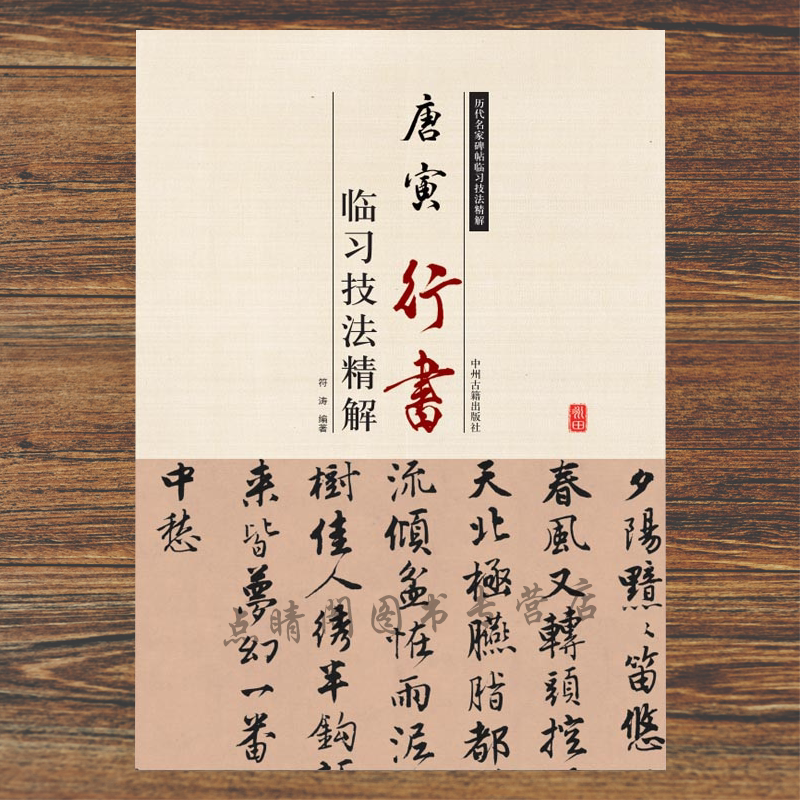 历代名家碑帖临习技法精解
中州古籍出版社
唐寅
行書
临习技法精解
符涛 编著
夕陽黯〻笛悠
春風又轉頭控
天北極臙脂都
流傾盆怪雨泥
樹佳人綉半鈎
来皆夢幻一番
中愁
点睛阁图书专营店